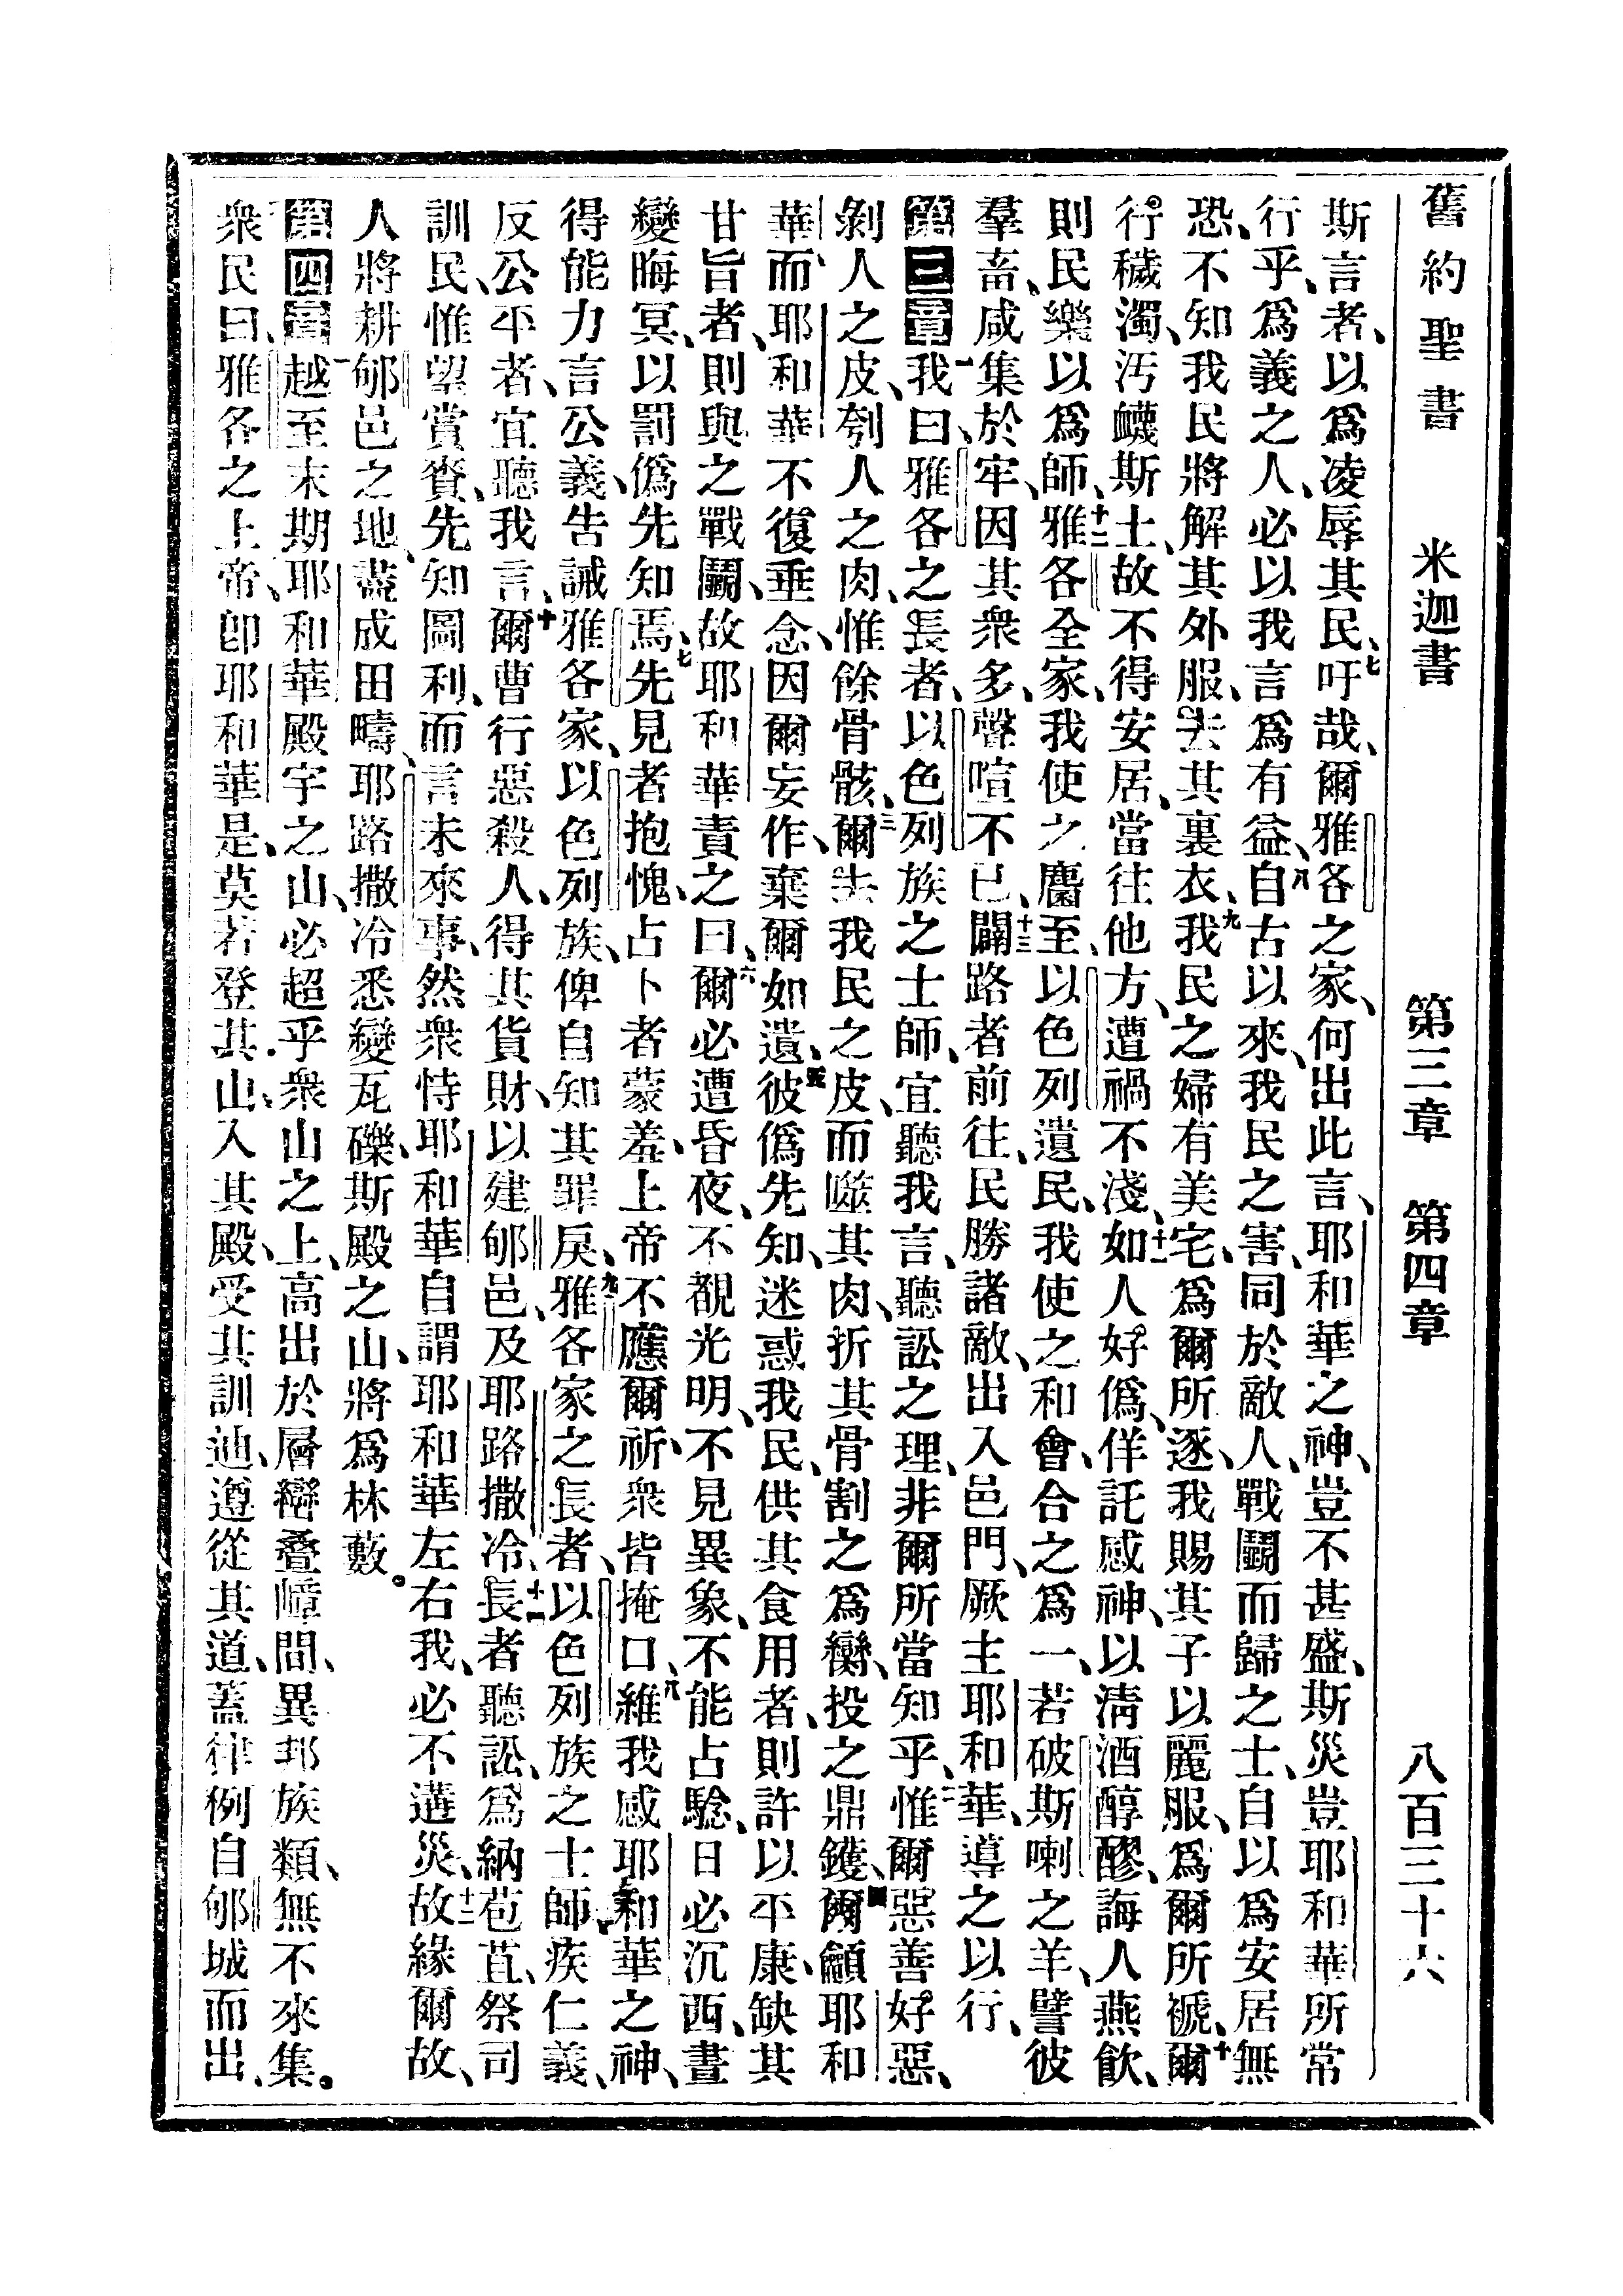 舊約聖書 米迦書 第三章 第四章 八百三十六
斯言者、以爲凌辱其民、七吁哉、爾雅各之家、何出此言、耶和華之神、豈不甚盛、斯災豈耶和華所常
行乎、爲義之人、必以我言爲有益、八自古以來、我民之害、同於敵人、戰鬭而歸之士、自以爲安居無
恐、不知我民將解其外服、去其裏衣、九我民之婦有美宅、爲爾所逐、我賜其子以麗服、爲爾所褫、十爾
行穢濁、污衊斯土、故不得安居、當往他方、遭禍不淺、十一如人好僞、佯託感神、以淸酒醇醪、誨人燕飮、
則民樂以爲師、十二雅各全家、我使之麕至、以色列遺民、我使之和會、合之爲一、若破斯喇之羊、譬彼
羣畜、咸集於牢、因其衆多、聲喧不已、十三闢路者前往、民勝諸敵、出入邑門、厥主耶和華、導之以行、
第三章 一我曰、雅各之長者、以色列族之士師、宜聽我言、聽訟之理、非爾所當知乎、二惟爾惡善好惡、
剝人之皮、刳人之肉、惟餘骨骸、三爾去我民之皮、而噬其肉、折其骨割之爲臠、投之鼎鑊、四爾籲耶和
華、而耶和華不復垂念、因爾妄作、棄爾如遺、五彼僞先知、迷惑我民、供其食用者、則許以平康、缺其
甘旨者、則與之戰鬭、故耶和華責之曰、六爾必遭昏夜、不覩光明、不見異象、不能占騐、日必沉西、晝
變晦冥、以罰僞先知焉、七先見者抱愧、占卜者蒙羞、上帝不應爾祈、衆皆掩口、八維我感耶和華之神、
得能力言公義、告誡雅各家、以色列族、俾自知其罪戾、九雅各家之長者、以色列族之士師、疾仁義、
反公平者、宜聽我言、十爾曹行惡殺人、得其貨財、以建郇邑、及耶路撒冷、十一長者聽訟、爲納苞苴、祭司
訓民、惟望賞賚、先知圖利、而言未來事、然衆恃耶和華、自謂耶和華左右我、必不遘災、十二故緣爾故、
人將耕郇邑之地、盡成田疇、耶路撒冷悉變瓦礫、斯殿之山、將爲林藪。
第四章 一越至末期、耶和華殿宇之山、必超乎衆山之上、高出於層巒疊嶂間、異邦族類、無不來集。
衆民曰、雅各之上帝、卽耶和華是、莫若登其山、入其殿、受其訓迪、遵從其道、蓋律例自郇城而出、